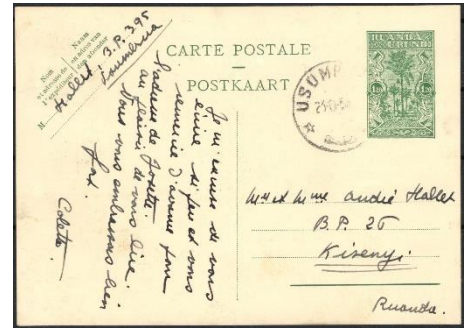 Nom
et adresse de
l'expéditeur
Naam
en adres van
den afzender
Hallet, B.P. 395
Usumbura
M
CARTE POSTALE
POSTKAART
RUANDA
URUNDI
1,20
1,20
USUMB
Je m'excuse de vous
écrire si peu et vous
remercie d'avance pour
l'adresse de Josette.
au plaisir de vous lire.
Nous vous embrassons bien
fort.
Colette
Mr et Mme André Hallet
B.P. 26
Kisenyi
Ruanda.